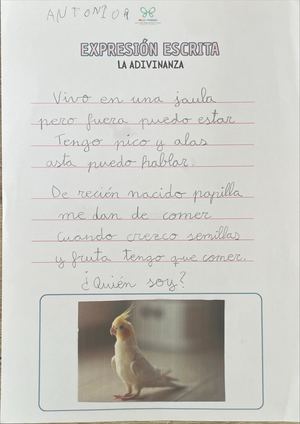 ANTONIOA
EXPRESIÓN ESCRITA
LA ADIVINANZA
Vivo en una jaula
pero fuera puedo estar
Tengo pico y alas
asta puedo hablar.
De recién nacido papilla
me dan de comer
Cuando crezco semillas
y fruta tengo que comer.
¿Quién soy?